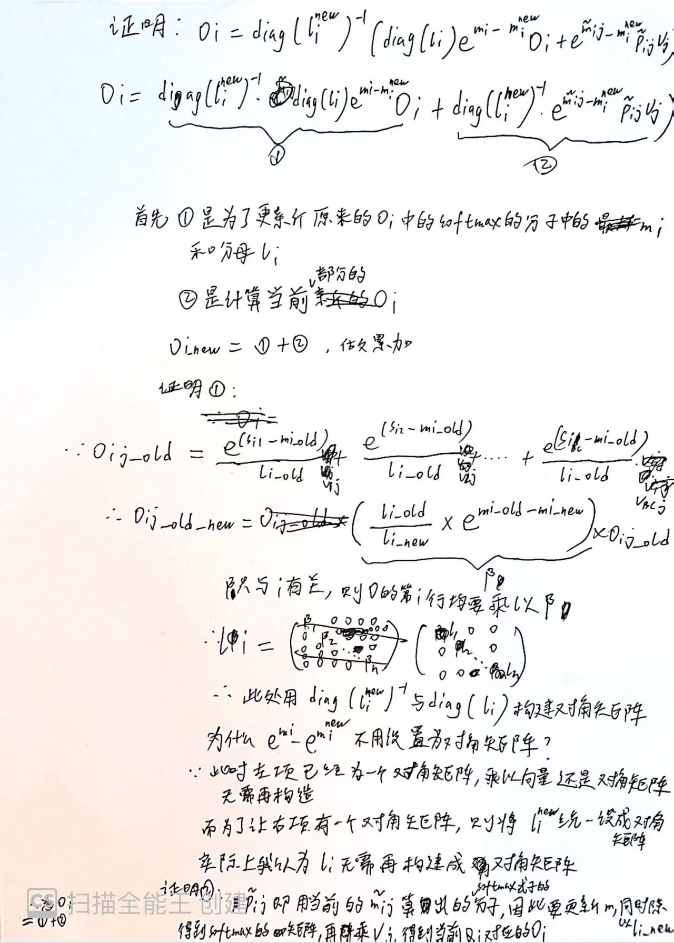 证明: Oi = diag(li^new)^-1 (diag(li) e^(mi - mi^new) Oi + e^(m̃ij - mi^new) P̃ij Vj)
Oi = diag(li^new)^-1 · diag(li) e^(mi - mi^new) Oi + diag(li^new)^-1 · e^(m̃ij - mi^new) P̃ij Vj)
① ②
首先 ① 是为了更新 原来的 Oi 中的 softmax的分子中的 mi
和分母 li
② 是计算当前部分的 Oi
Oi_new = ① + ② , 做累加
证明①:
∵ Oij_old = e^(si1 - mi_old) / li_old V1j + e^(si2 - mi_old) / li_old V2j + ···· + e^( - mi_old) / li_old
∴ Oij_old_new = (li_old / li_new × e^(mi_old - mi_new)) × Oij_old
β
只与 i 有关, 则 O 的第 i 行均要乘以 β
∴ 此处用 diag(li^new)^-1 与 diag(li) 构建对角矩阵
为什么 e^mi - e^mi^new 不用设置为对角矩阵?
∵ 此时左项已经为一个对角矩阵, 乘以向量还是对角矩阵
无需再构造
而为了让右项有一个对角矩阵, 则将 li^new 统一设成对角
矩阵
实际上我认为 li 无需再构建成对角矩阵
证明②: P̃ij 即用当前的 m̃ij 算出的softmax式子的分子, 因此要更新 m, 同时除以 li_new
得到 softmax 的矩阵, 再乘 Vj 得到当前 对应的 Oi
∴ Oi
= ①+②
CS 扫描全能王 创建